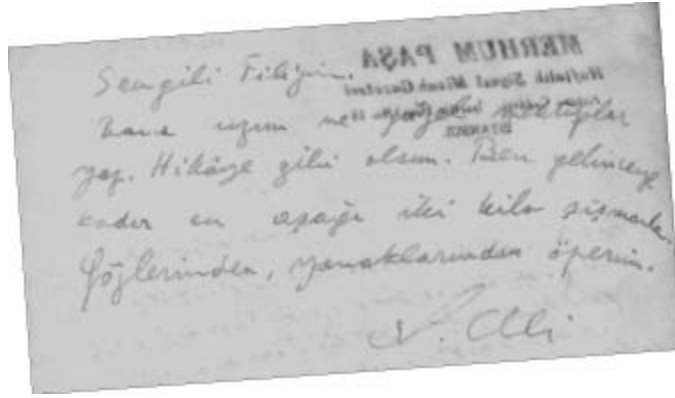 MERHUM PAŞA
Haftalık Siyasi Mizah Gazetesi
İSTANBUL
Sevgili Filizim.
Bana uzun ve güzel mektuplar
yaz. Hikâye gibi olsun. Ben gelinceye
kadar en aşağı iki kilo şişmanla.
Gözlerinden, yanaklarından öperim.
S. Ali